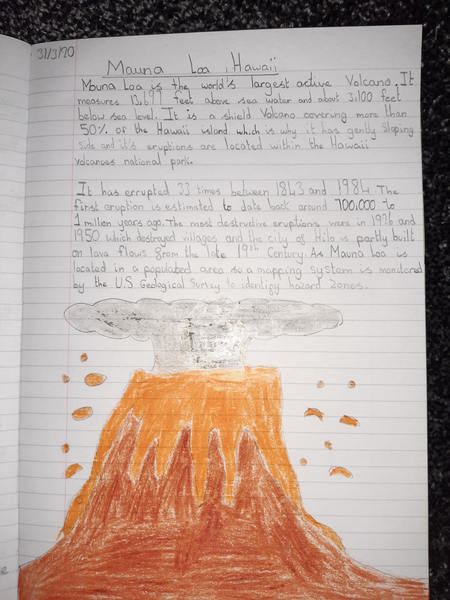 31/3/20
Mauna Loa, Hawaii
Mauna Loa is the world's largest active Volcano. It
measures 13,677 feet above sea water and about 3,100 feet
below sea level. It is a shield Volcano covering more than
50% of the Hawaii island which is why it has gently sloping
side and it's eruptions are located within the Hawaii
Volcanoes national park.
It has errupted 33 times between 1843 and 1984 The
first eruption is estimated to date back around 700,000 to
1 million years ago. The most destructive eruptions were in 1926 and
1950 which destroyed villages and the city of Hilo is partly built
on lava flows from the late 19th Century. As Mauna Loa is
located in a populated area so a mapping system is monitored
by the U.S Geological Survey to identify hazard zones.